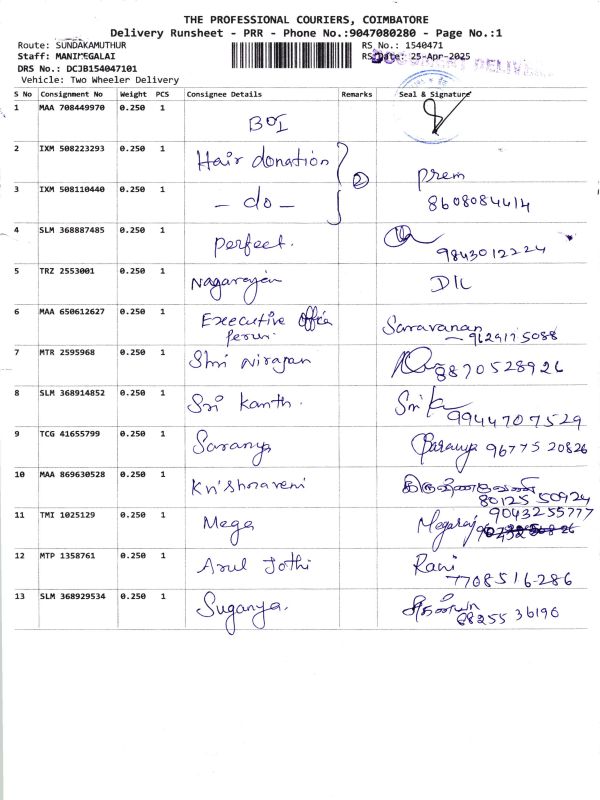 THE PROFESSIONAL COURIERS, COIMBATORE
Delivery Runsheet - PRR - Phone No.:9047080280 - Page No.:1
Route: SUNDAKAMUTHUR
RS No.: 1540471
Staff: MANIMEGALAI
RS Date: 25-Apr-2025
DRS No.: DCJB154047101
Vehicle: Two Wheeler Delivery
S No Consignment No Weight PCS Consignee Details Remarks Seal & Signature
1 MAA 708449970 0.250 1 BOI
2 IXM 508223293 0.250 1 Hair donation
3 IXM 508110440 0.250 1 - do - 2 Prem
8608084414
4 SLM 368887485 0.250 1 perfect.
9843012224
5 TRZ 2553001 0.250 1 Nagarajan
6 MAA 650612627 0.250 1 Executive Office Saravanan
perur. 9629175088
7 MTR 2595968 0.250 1 Shri Nirajan 8870528926
8 SLM 368914852 0.250 1 Sri kanth. Sri K
9944707529
9 TCG 41655799 0.250 1 Saranya Saranya 96775 20826
10 MAA 869630528 0.250 1 Krishnaveni
80125 50924
11 TMI 1025129 0.250 1 Mega Megaraj 9043255777
12 MTP 1358761 0.250 1 Arul Jothi Rani
7708516286
13 SLM 368929534 0.250 1 Suganya.
88255 36190